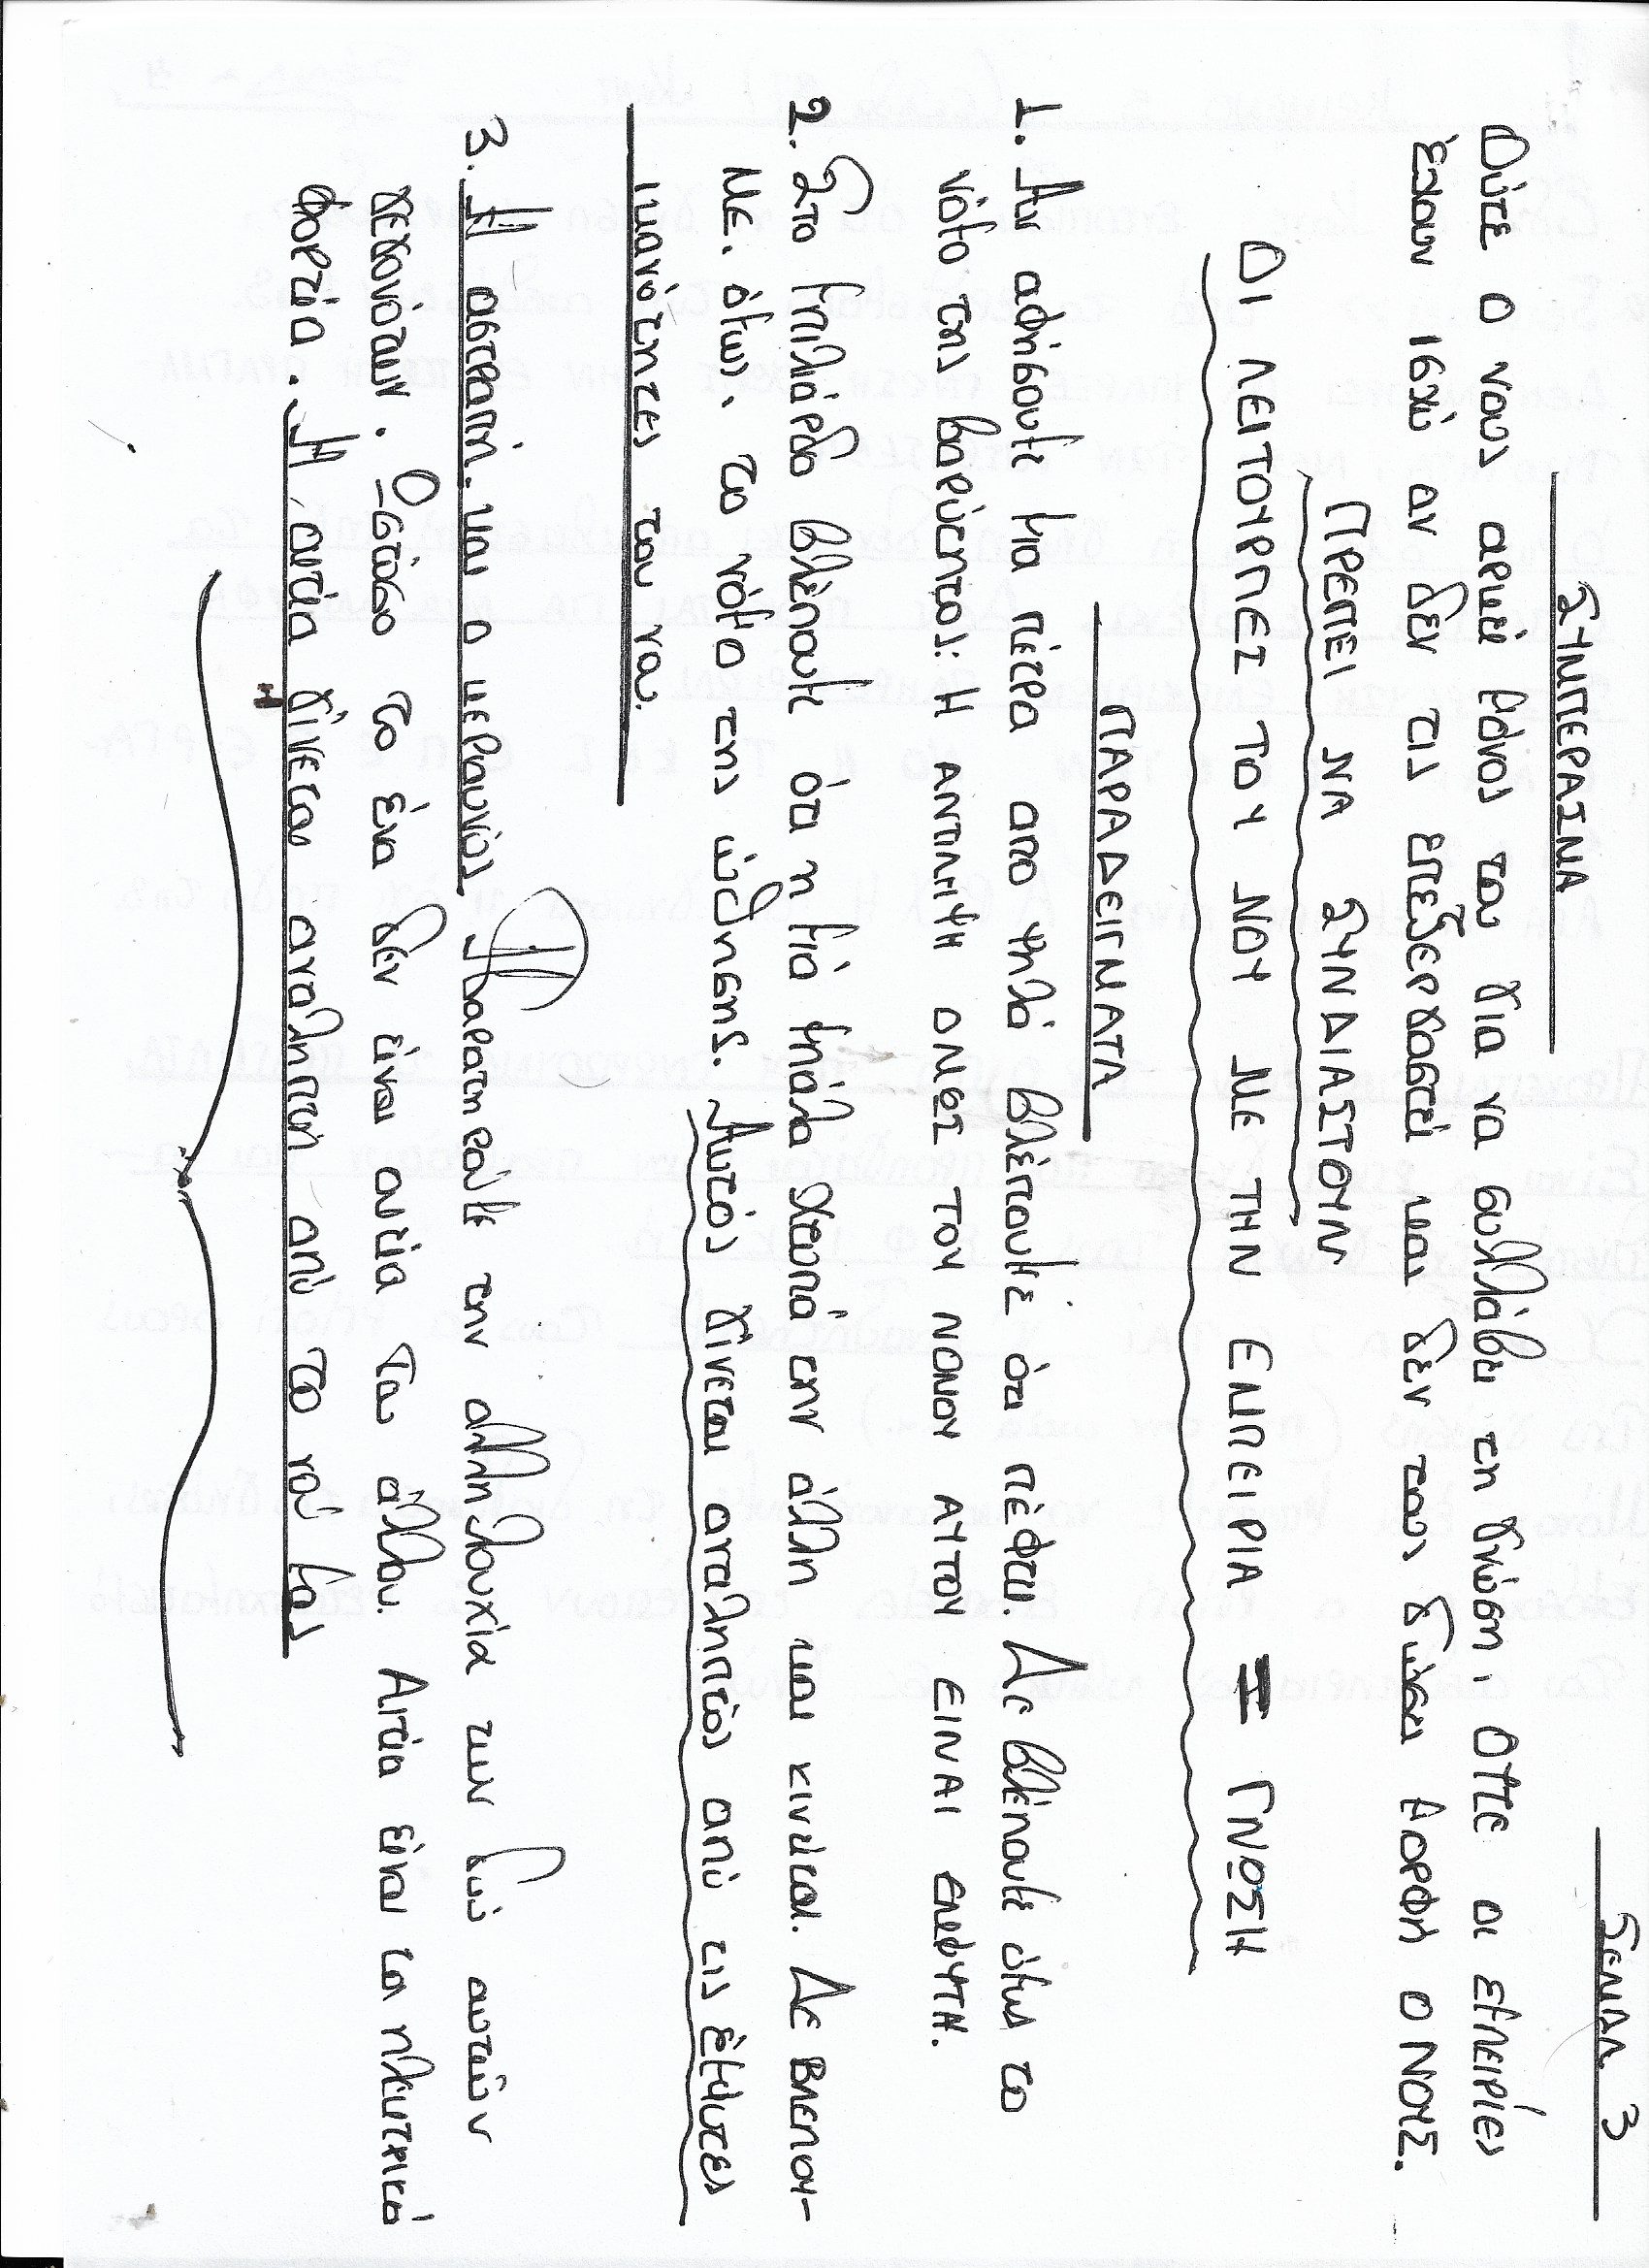 ΣΕΛΙΔΑ 3
ΣΥΜΠΕΡΑΣΜΑ
Ούτε ο νους αρκεί μόνος του για να συλλάβει τη γνώση. ΟΥΤΕ οι εμπειρίες
έχουν ισχύ αν δεν τις επεξεργαστεί και δεν τους δώσει ΜΟΡΦΗ Ο ΝΟΥΣ.
ΠΡΕΠΕΙ ΝΑ ΣΥΝΔΙΑΣΤΟΥΝ
ΟΙ ΛΕΙΤΟΥΡΓΙΕΣ ΤΟΥ ΝΟΥ ΜΕ ΤΗΝ ΕΜΠΕΙΡΙΑ = ΓΝΩΣΗ
ΠΑΡΑΔΕΙΓΜΑΤΑ
1. Αν αφήσουμε μια πέτρα απο ψηλά βλέπουμε ότι πέφτει. Δε βλέπουμε όμως το
νόμο της βαρύτητας: Η ΑΝΤΙΛΗΨΗ ΟΜΩΣ ΤΟΥ ΝΟΜΟΥ ΑΥΤΟΥ ΕΙΝΑΙ ΕΜΦΥΤΗ.
2. Στο μπιλιάρδο βλέπουμε ότι η μιά μπάλα χτυπά την άλλη και κινείται. Δε ΒΛΕΠΟΥ-
ΜΕ. όμως. το νόμο της ώθησης. Αυτός γίνεται αντιληπτός από τις έμφυτες
ικανότητες του νου.
3. Η αστραπή. και ο κεραυνός. Παρατηρούμε την αλληλουχία των δυό αυτών
γεγονότων. Ωστόσο το ένα δεν είναι αιτία του άλλου. Αιτία είναι τα ηλεκτρικά
φορτία. Η αιτία γίνεται αντιληπτή από το νού μας